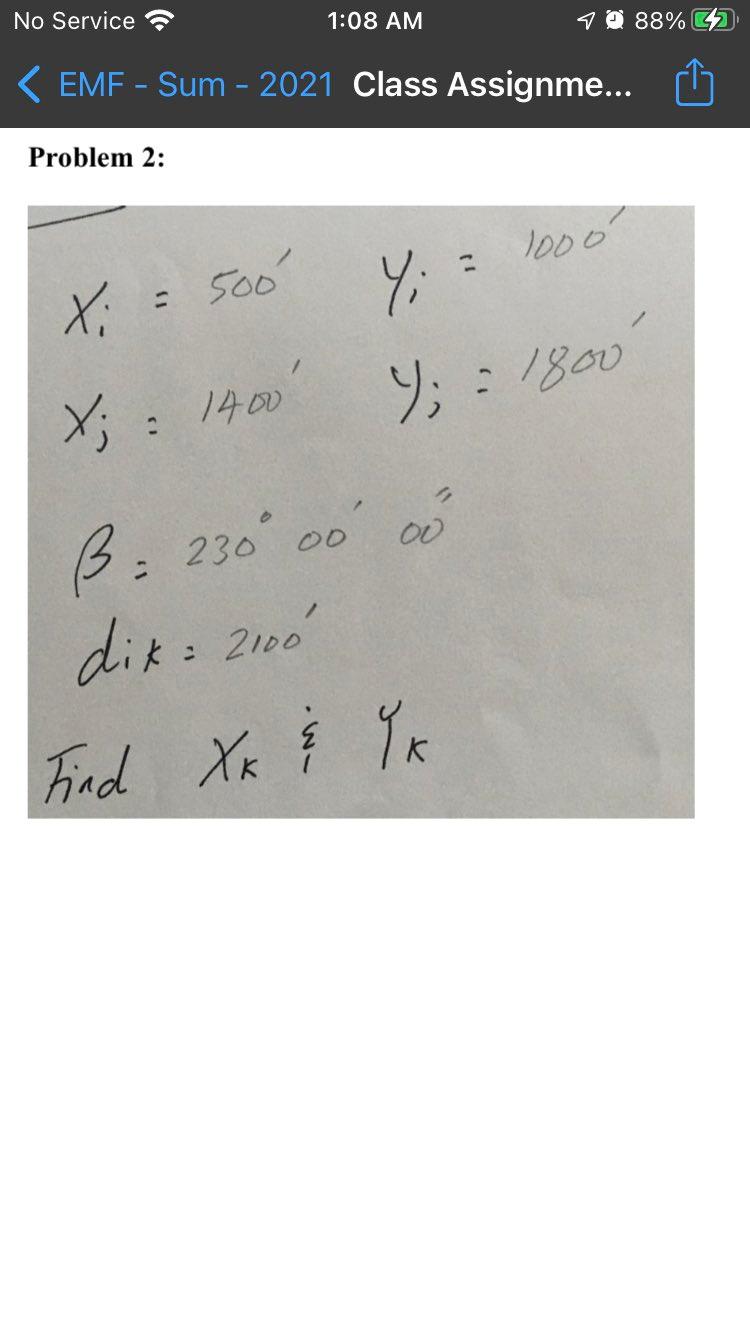 No Service 1:08 AM 88%
EMF - Sum - 2021 Class Assignme...
Problem 2:
Xi = 500' Yi = 1000'
Xj = 1400' Yj = 1800'
β = 230° 00' 00"
dik = 2100'
Find XK & YK